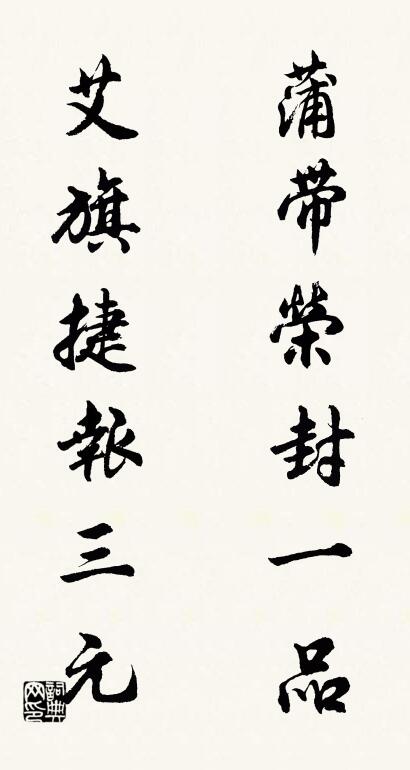 蒲带荣封一品
艾旗捷報三元
詞典網印